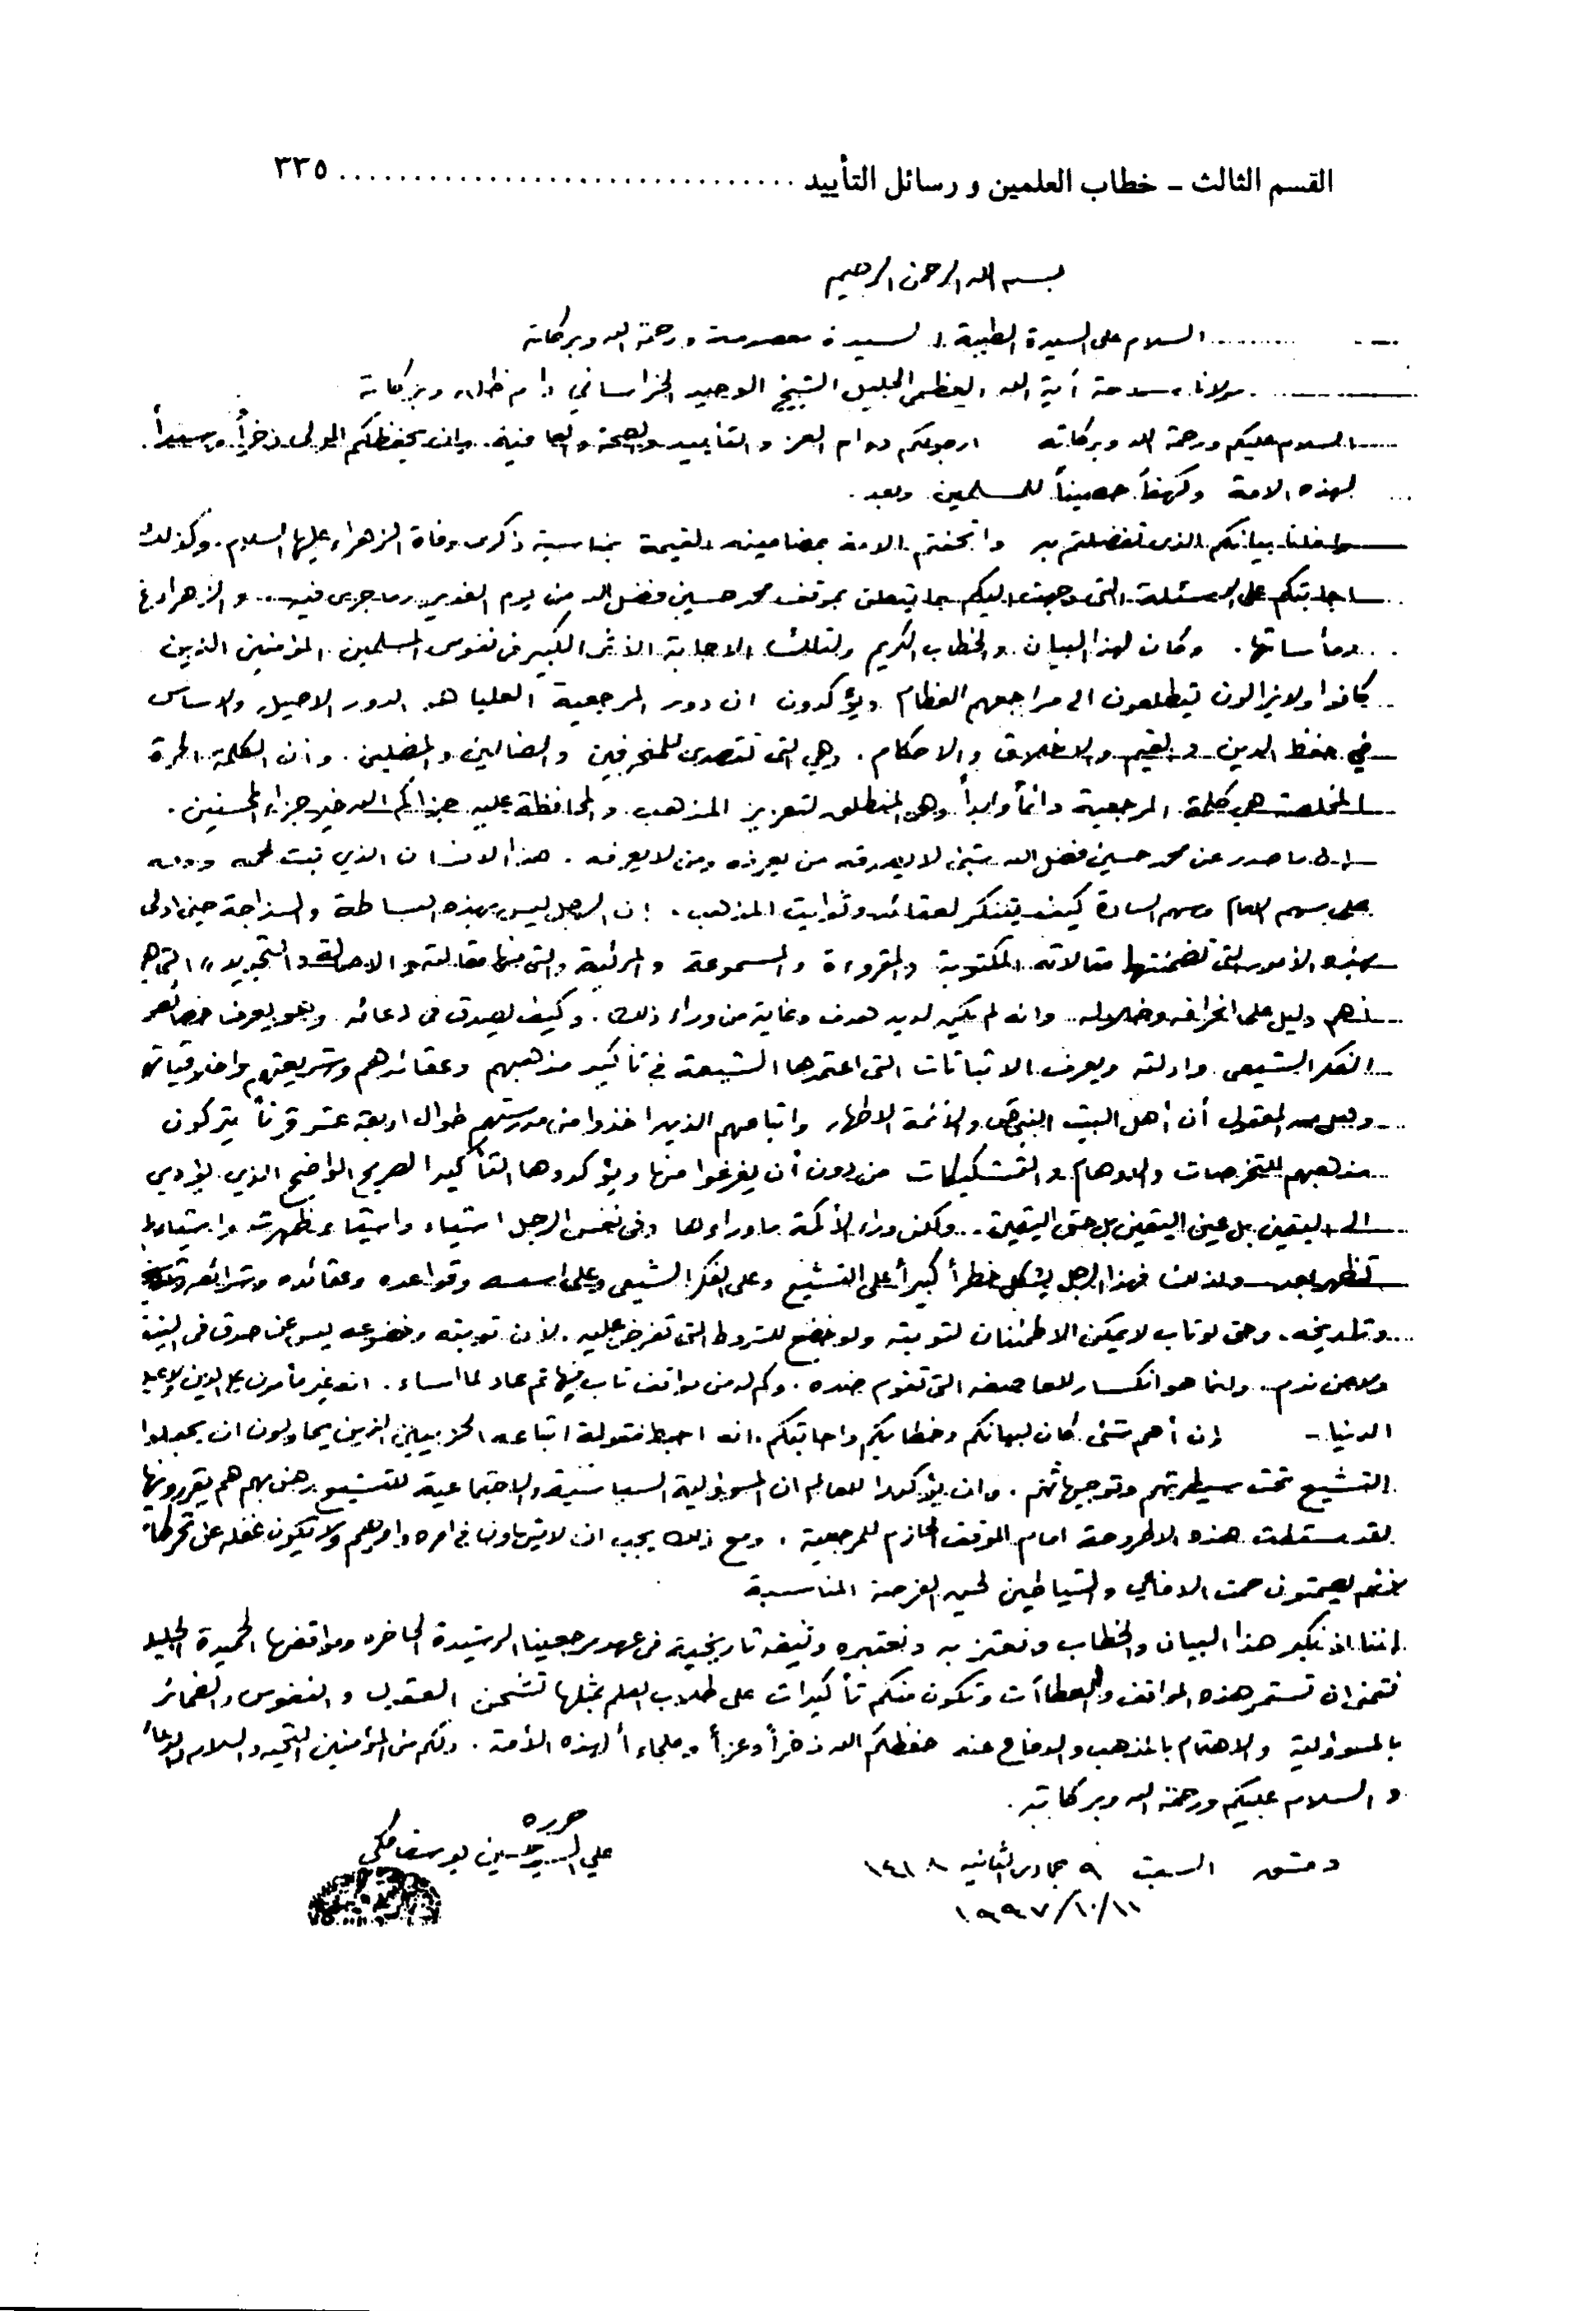 القسم الثالث - خطاب العلمين و رسائل التأييد .............................. ٣٣٥
بسم الله الرحمن الرحيم
السلام على السيدة الطيبة السيدة معصومة ورحمة الله وبركاته
مولانا سماحة آية الله العظمى الجليل الشيخ الوحيد الخراساني دام ظله وبركاته
السلام عليكم ورحمة الله وبركاته ارجو لكم دوام العز والتأييد والصحة والعافية. وان يحفظكم المولى ذخراً وسنداً.
لهذه الامة وكهفاً حصيناً للمسلمين وبعد.
وصلنا بيانكم الذي تفضلتم به واتحفتم الامة بمضامينه القيمة بمناسبة ذكرى وفاة الزهراء عليها السلام. وكذلك
اجابتكم على الاسئلة التي وجهت اليكم بما يتعلق بموقف محمد حسين فضل الله من يوم الغدير وما جرى فيه.. والزهراء
ومأساتها. وكان لهذا البيان والخطاب الكريم ولتلك الاجابة الأثر الكبير في نفوس المسلمين المؤمنين الذين
كانوا ولا يزالون يتطلعون الى مراجعهم العظام ويؤكدون ان دور المرجعية العليا هو الدور الاصيل والاساس
في حفظ الدين والقيم والاخلاق والاحكام. وهي التي تتصدى للمنحرفين والضالين والمضلين. وان الكلمة الحرة
المخلصة هي كلمة المرجعية دائماً وابداً وهي المنطلق لتعزيز المذهب والمحافظة عليه جزاكم الله خير جزاء المحسنين.
ان ما صدر عن محمد حسين فضل الله شيئ لا يصدقه من يعرفه ومن لا يعرفه. هذا الانسان الذي نبت لحمه ودمه
على سهم الامام وسهم السادة كيف يتنكر لعقائد وثوابت المذهب. ان الرجل ليس بهذه البساطة والسذاجة حين ادلى
بهذه الأمور التي تضمنتها مقالاته المكتوبة والمقروءة والمسموعة والمرئية والتي منها مقالته والاصالة والتجديد" التي هي
أهم دليل على انحرافه وضلاله.. وانه لم يكن لديه هدف وغاية من وراء ذلك. وكيف يصدق في ادعائه وهو يعرف خصائص
الفكر الشيعي وادلته ويعرف الاثباتات التي اعتمدها الشيعة في تأكيد مذهبهم وعقائدهم وشريعتهم واخلاقياتهم
وهل من المعقول أن أهل البيت النبي ص والأئمة الاطهار واتباعهم الذين اخذوا من مدرستهم طوال اربعة عشر قرناً يتركون
مذهبهم للتخرصات والاوهام والتشكيكات من دون أن يفرغوا منها ويؤكدوها التأكيد الصريح الواضح الذي يؤدي
الى اليقين بل عين اليقين بل حق اليقين.. ولكن وراء الأكمة ما وراءها وفي نفس الرجل اشياء واشياء ظهرت واشياء لم
تظهر بعد ولذلك فهذا الرجل يشكل خطراً كبيراً على التشيع وعلى الفكر الشيعي وعلى اسسه وقواعده وعقائده وشرائعه
وتاريخه. وحتى لو تاب لا يمكن الاطمئنان لتوبته ولو خضع للشروط التي تفرض عليه. لأن توبته وخضوعه ليس عن صدق في النية
ولا عن ندم.. وانما هو انكسار للعاصفه التي تقوم ضده. وكم له من مواقف تاب فيها ثم عاد لما اساء. انه غير مأمون على الدين ولا على
الدنيا - إن أهم شيئ كان لبيانكم وخطابكم واجابتكم. انه احبط مقولة اتباعه الحزبيين الذين يحاولون ان يجعلوا
التشيع تحت سيطرتهم وتوجيهاتهم. وان يؤكدوا للعالم ان المسؤولية السياسية والاجتماعية للتشيع رهن بهم هم يقررونها
لقد سقطت هذه الاطروحة امام الموقف الحازم للمرجعية. ومع ذلك يجب ان لا يتهاون في امره وامرهم ولا تكون غفله عن تحركاته
يصمتون صمت الافاعي والشياطين لحين الفرصة المناسبة
اننا اذ نكبر هذا البيان والخطاب ونعتز به ونعتبره وثيقة تاريخية في عهد مرجعيتنا الرشيدة الحاضره ومواقفها الحميدة الجليلة
نتمنى ان تستمر هذه المواقف والعطاآت وتكون منكم تأكيدات على طلاب العلم بمثلها تشحن العقول والنفوس والضمائر
بالمسؤولية والاهتمام بالمذهب والدفاع عنه حفظكم الله ذخراً وعزاً وملجاءاً لهذه الأمة. ولكم من المؤمنين التحيه والسلام والدعاء
والسلام عليكم ورحمة الله وبركاته.
حرره
علي السيد حسين يوسف مكي
دمشق السبت ٩ جمادى الثانيه ١٤١٨
١٩٩٧/١٠/١١